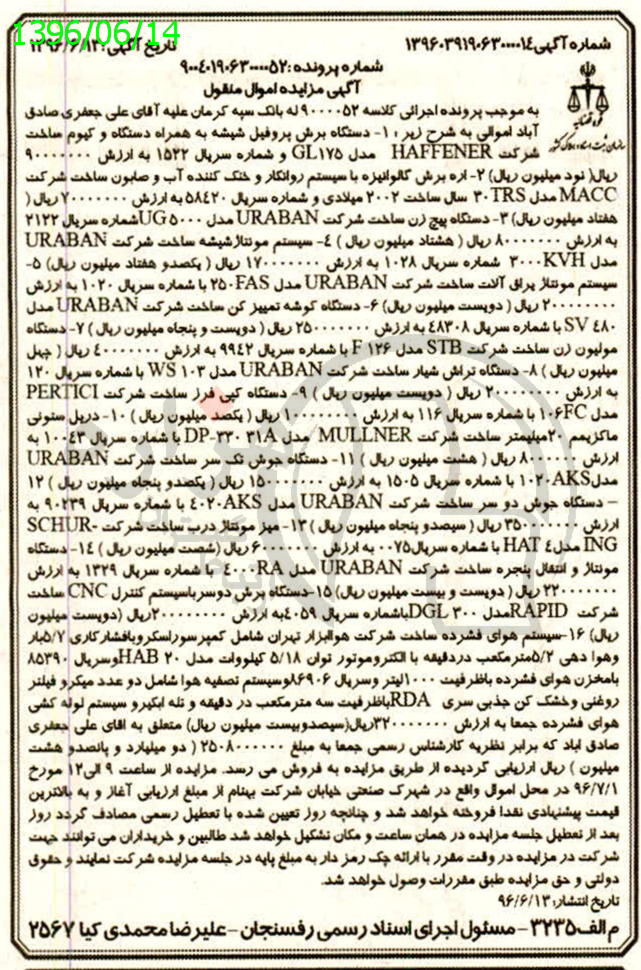 1396/06/14
شماره آگهی:۱۳۹۶۰۳۹۱۹۰۶۳۰۰۰۰۱۴ تاریخ آگهی:۱۳۹۶/۶/۱۳
شماره پرونده:۹۰۰۴۰۱۹۰۶۳۰۰۰۰۵۲
آگهی مزایده اموال منقول
به موجب پرونده اجرائی کلاسه ۹۰۰۰۰۵۲ له بانک سپه کرمان علیه آقای علی جعفری صادق
آباد اموالی به شرح زیر: ۱- دستگاه برش پروفیل شیشه به همراه دستگاه و کیوم ساخت
شرکت HAFFENER مدل GL۱۷۵ و شماره سریال ۱۵۲۲ به ارزش ۹۰۰۰۰۰۰۰
ریال( نود میلیون ریال) ۲- اره برش گالوانیزه با سیستم روانکار و خنک کننده آب و صابون ساخت شرکت
MACC مدل TRS ۳۰۰ سال ساخت ۲۰۰۲ میلادی و شماره سریال ۵۸۴۲۰ به ارزش ۷۰۰۰۰۰۰۰ ریال (
هفتاد میلیون ریال) ۳- دستگاه پیچ زن ساخت شرکت URABAN مدل UG ۵۰۰۰ شماره سریال ۲۱۲۲
به ارزش ۸۰۰۰۰۰۰۰ ریال ( هشتاد میلیون ریال ) ۴- سیستم مونتاژ شیشه ساخت شرکت URABAN
مدل ۳۰۰۰KVH شماره سریال ۱۰۲۸ به ارزش ۱۷۰۰۰۰۰۰۰ ریال ( یکصدو هفتاد میلیون ریال) ۵-
سیستم مونتاژ یراق آلات ساخت شرکت URABAN مدل ۲۵۰FAS با شماره سریال ۱۰۲۰ به ارزش
۲۰۰۰۰۰۰۰۰ ریال ( دویست میلیون ریال) ۶- دستگاه گوشه تمییز کن ساخت شرکت URABAN مدل
SV ۴۸۰ با شماره سریال ۴۸۳۰۸ به ارزش ۲۵۰۰۰۰۰۰۰ ریال ( دویست و پنجاه میلیون ریال ) ۷- دستگاه
مولیون زن ساخت شرکت STB مدل F ۱۲۶ با شماره سریال ۹۹۴۲ به ارزش ۴۰۰۰۰۰۰۰ ریال ( چهل
میلیون ریال ) ۸- دستگاه تراش شیار ساخت شرکت URABAN مدل WS ۱۰۳ با شماره سریال ۱۲۰
به ارزش ۲۰۰۰۰۰۰۰۰ ریال ( دویست میلیون ریال ) ۹- دستگاه کپی فرز ساخت شرکت PERTICI
مدل ۱۰۶FC با شماره سریال ۱۱۶ به ارزش ۱۰۰۰۰۰۰۰۰ ریال ( یکصد میلیون ریال ) ۱۰- دریل ستونی
ماکزیمم ۲۰میلیمتر ساخت شرکت MULLNER مدل DP-۳۳۰ ۳۱A با شماره سریال ۱۰۰۴۳ به
ارزش ۸۰۰۰۰۰۰ ریال ( هشت میلیون ریال ) ۱۱- دستگاه جوش تک سر ساخت شرکت URABAN
مدل۱۰۲۰AKS با شماره سریال ۱۵۰۵ به ارزش ۱۵۰۰۰۰۰۰۰ ریال ( یکصدو پنجاه میلیون ریال ) ۱۲
– دستگاه جوش دو سر ساخت شرکت URABAN مدل ۴۰۲۰AKS با شماره سریال ۹۰۲۳۹ به
ارزش ۳۵۰۰۰۰۰۰۰ ریال ( سیصدو پنجاه میلیون ریال ) ۱۳- میز مونتاژ درب ساخت شرکت SCHUR-
ING مدل HAT ۴ با شماره سریال۰۰۷۵ به ارزش ۶۰۰۰۰۰۰۰ ریال (شصت میلیون ریال ) ۱۴- دستگاه
مونتاژ و انتقال پنجره ساخت شرکت URABAN مدل ۴۰۰۰RA با شماره سریال ۱۳۲۹ به ارزش
۲۲۰۰۰۰۰۰۰ ریال ( دویست و بیست میلیون ریال) ۱۵-دستگاه برش دوسرباسیستم کنترل CNC ساخت
شرکت RAPID مدل DGL ۳۰۰ باشماره سریال ۴۰۵۹به ارزش ۲۰۰۰۰۰۰۰۰ریال (دویست میلیون
ریال) ۱۶-سیستم هوای فشرده ساخت شرکت هواابزار تهران شامل کمپرسوراسکروبافشارکاری ۷/۵بار
وهوا دهی ۵/۲مترمکعب دردقیقه با الکتروموتور توان ۵/۱۸ کیلووات مدل HAB ۲۰ وسریال ۸۵۳۹۰
بامخزن هوای فشرده باظرفیت ۱۰۰۰لیتر وسریال ۸۶۹۰۶وسیستم تصفیه هوا شامل دو عدد میکرو فیلتر
روغنی وخشک کن جذبی سری RDA باظرفیت سه مترمکعب در دقیقه و تله ابگیرو سیستم لوله کشی
هوای فشرده جمعا به ارزش ۳۲۰۰۰۰۰۰۰ریال(سیصدوبیست میلیون ریال) متعلق به اقای علی جعفری
صادق اباد که برابر نظریه کارشناس رسمی جمعا به مبلغ ۲۵۰۸۰۰۰۰۰۰ ( دو میلیارد و پانصدو هشت
میلیون ) ریال ارزیابی گردیده از طریق مزایده به فروش می رسد. مزایده از ساعت ۹ الی۱۲ مورخ
۹۶/۷/۱ در محل اموال واقع در شهرک صنعتی خیابان شرکت بهنام از مبلغ ارزیابی آغاز و به بالاترین
قیمت پیشنهادی نقدا فروخته خواهد شد و چنانچه روز تعیین شده با تعطیل رسمی مصادف گردد روز
بعد از تعطیل جلسه مزایده در همان ساعت و مکان تشکیل خواهد شد طالبین و خریداران می توانند جهت
شرکت در مزایده در وقت مقرر با ارائه چک رمز دار به مبلغ پایه در جلسه مزایده شرکت نمایند و حقوق
دولتی و حق مزایده طبق مقررات وصول خواهد شد.
تاریخ انتشار: ۹۶/۶/۱۳
م الف۳۲۳۵- مسئول اجرای اسناد رسمی رفسنجان –علیرضا محمدی کیا ۲۵۶۷